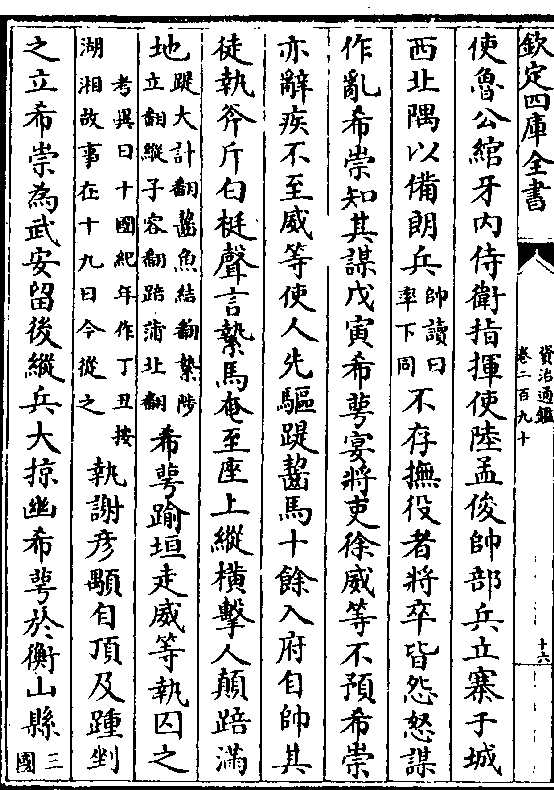 欽定四庫全書
資治通鑑
卷二百九十
十六
使魯公綰牙內侍衛指揮使陸孟俊帥部兵立寨于城
西北隅以備朗兵帥讀曰率下同不存撫役者將卒皆怨怒謀
作亂希崇知其謀戊寅希萼宴將吏徐威等不預希崇
亦辭疾不至威等使人先驅踶齧馬十餘入府自帥其
徒執斧斤白梃聲言縶馬奄至座上縱橫擊人顛踣滿
地踶大計翻齧魚結翻縶陟立翻縱子容翻踣蒲北翻希萼踰垣走威等執囚之
考異曰十國紀年作丁丑按湖湘故事在十九日今從之執謝彥顒自頂及踵剉
之立希崇為武安留後縱兵大掠幽希萼於衡山縣三國